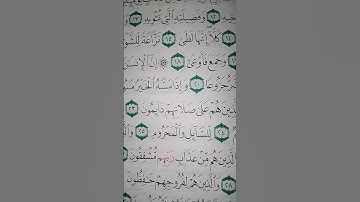 وَفَصِيلَتِهِ الَّتِي تُـْٔوِيهِ ١٣
١٤ كَلَّا إِنَّهَا لَظَىٰ ١٥ نَزَّاعَةً
وَجَمَعَ فَأَوْعَىٰ ١٨ ۞ إِنَّ الْإِنسَٰنَ
جَزُوعًا ٢٠ وَإِذَا مَسَّهُ الْخَيْرُ
الَّذِينَ هُمْ عَلَىٰ صَلَاتِهِمْ دَآئِمُونَ ٢٣
٢٤ لِّلسَّآئِلِ وَالْمَحْرُومِ ٢٥
الَّذِينَ هُم مِّنْ عَذَابِ رَبِّهِم مُّشْفِقُونَ
٢٨ وَالَّذِينَ هُمْ لِفُرُوجِهِمْ حَٰفِظُونَ